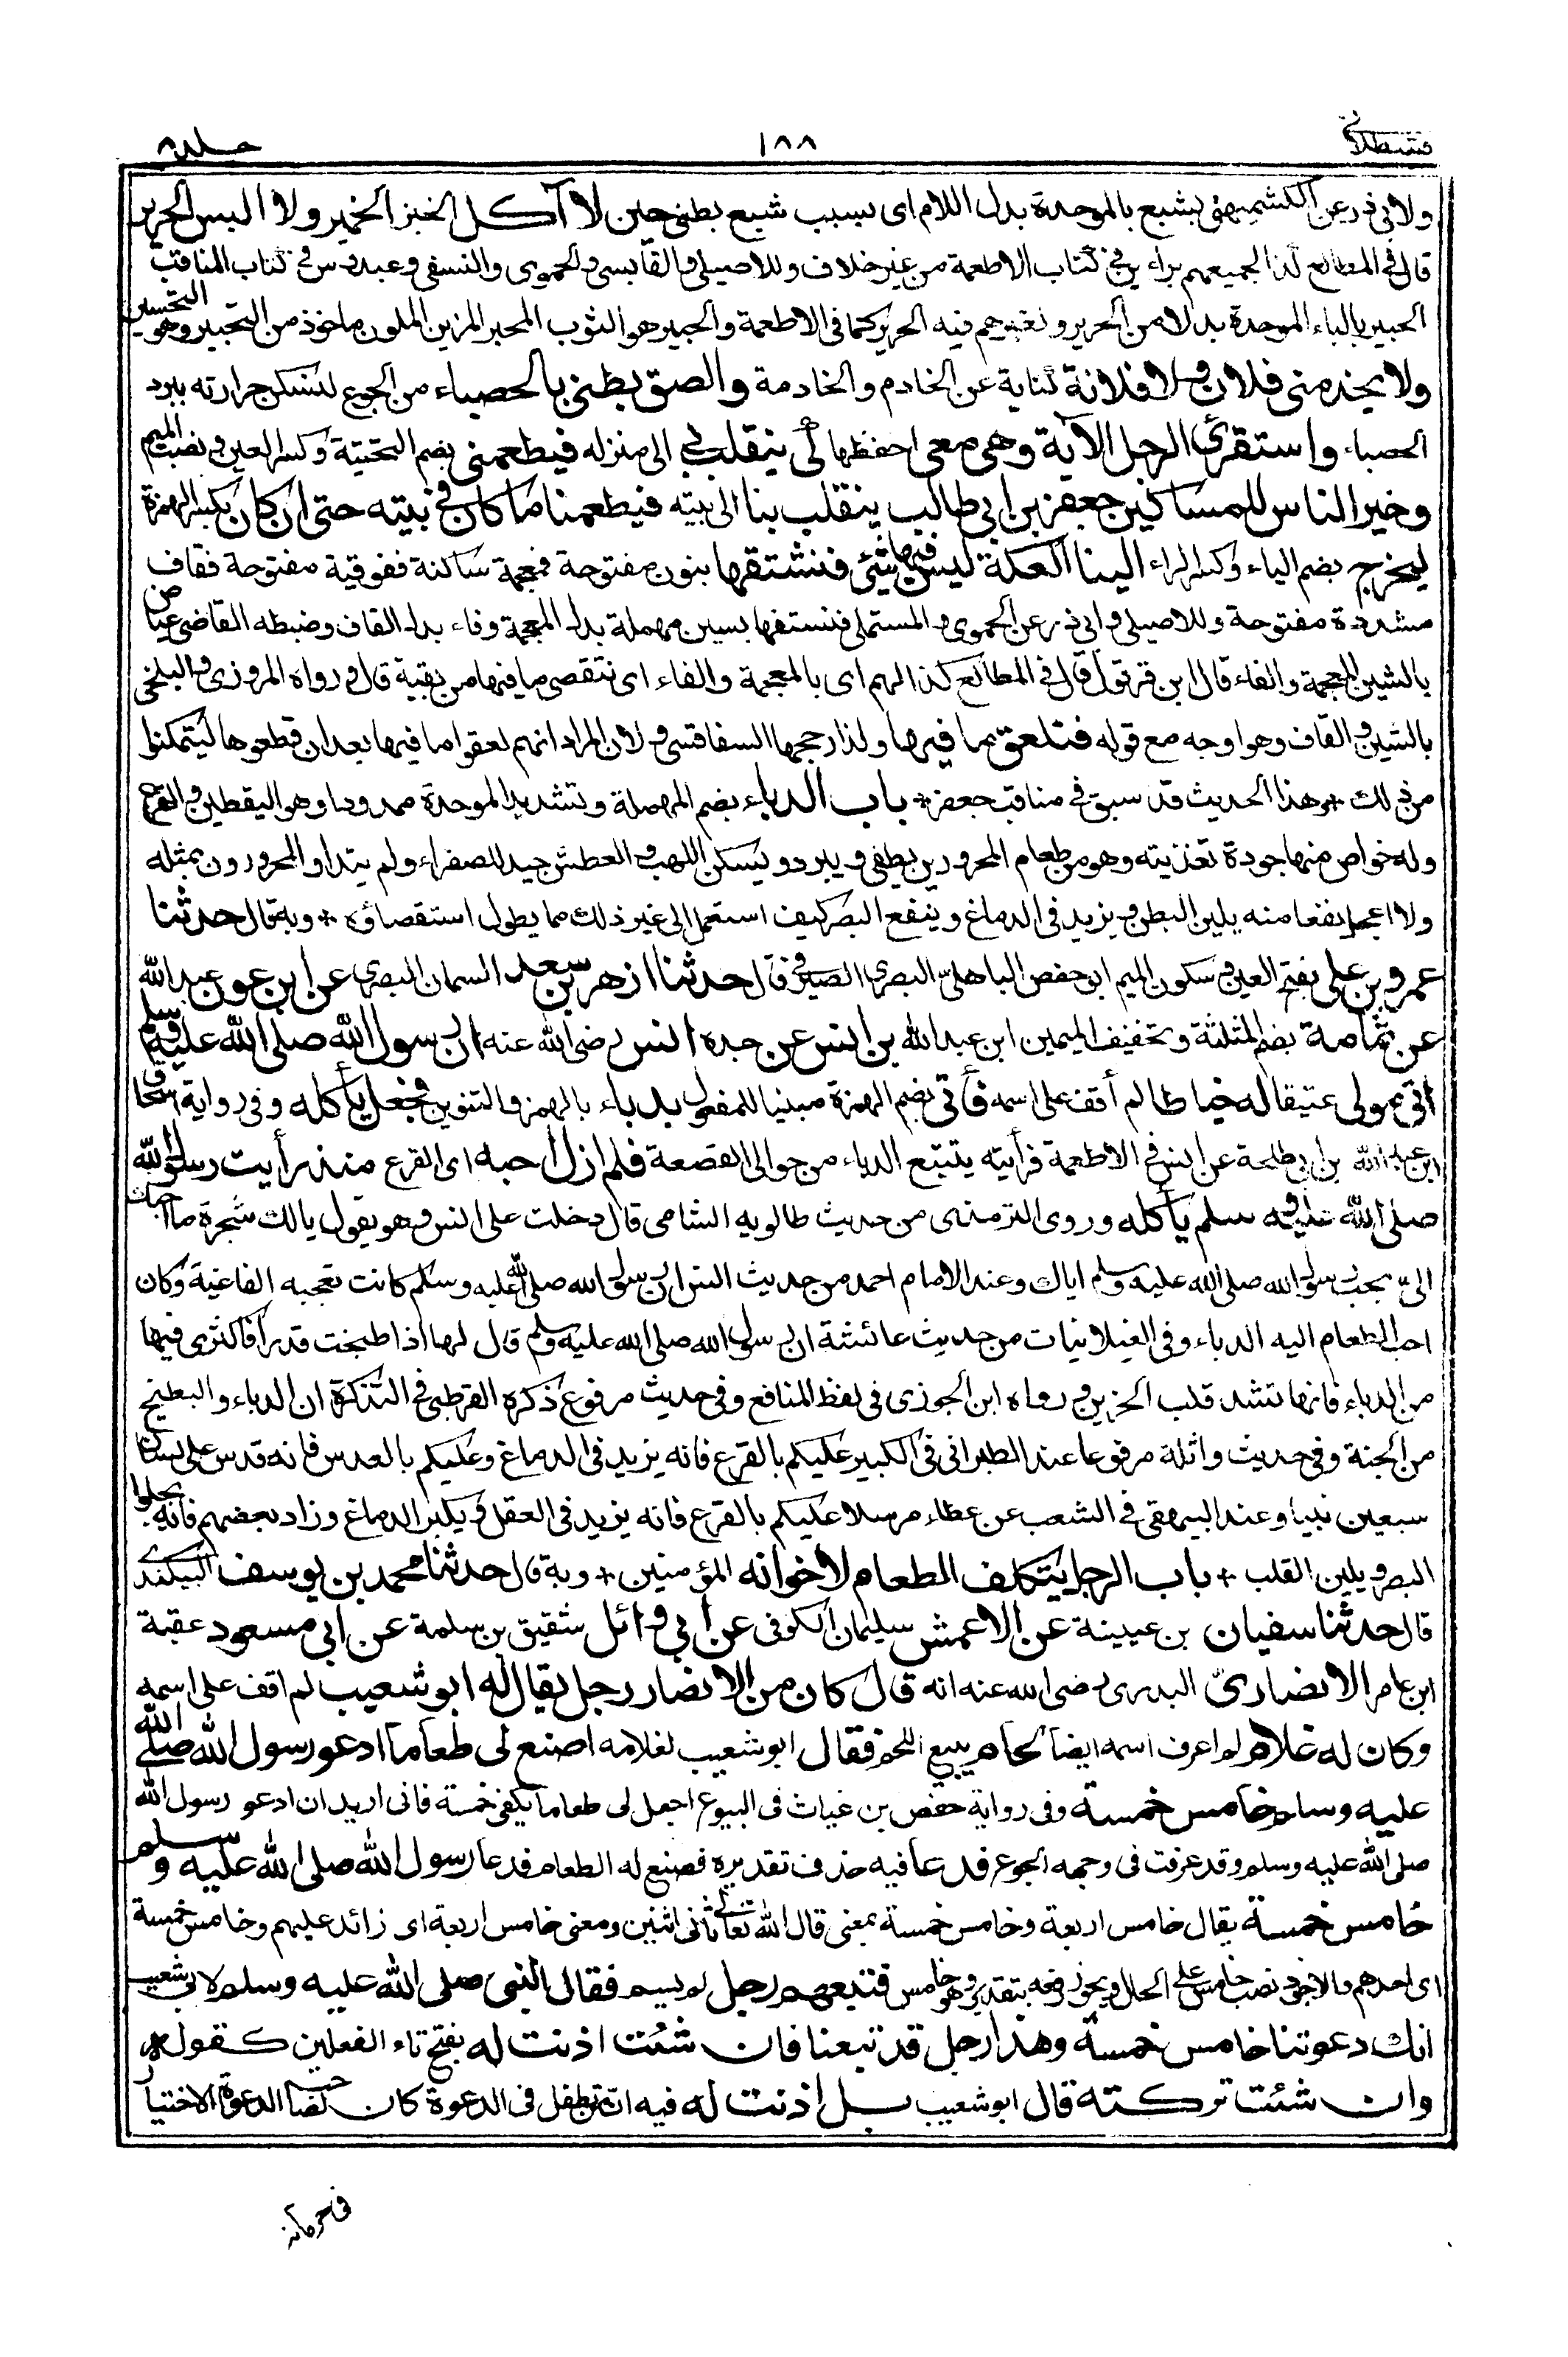 قسطلاني ١٨٨ جلد٨
ولابي ذر عن الكشميهني بشبع بالموحدة بدل اللام اى بسبب شبع بطني حين لا آكل الخبز الخمير ولا البس الحرير
قال في المطالع كذا لجميعهم براءين في كتاب الاطعمة من غير خلاف وللاصيلي والقابسي والحموي والنسفي وعبدوس في كتاب المناقب
الحبير بالباء الموحدة بدلا من الحرير ولغيرهم فيه الحرير كما في الاطعمة والحبير هو الثوب المحبر المزين الملون ماخوذ من التحبير وهو التحسين
ولا يخدمني فلان ولا فلانة كناية عن الخادم والخادمة والصق بطني بالحصباء من الجوع لتسكن حرارته ببرد
الحصباء واستقرئ الرجل الآية وهي معي احفظها كى ينقلب بي الى منزله فيطعمني بضم التحتية وكسر العين ونصب الميم
وخير الناس للمساكين جعفر بن ابي طالب ينقلب بنا الى بيته فيطعمنا ما كان في بيته حتى ان كان بكسر الهمزة
ليخرج بضم الياء وكسر الراء الينا العكة ليس فيها شئ فنشتقها بنون مفتوحة فمعجمة ساكنة ففوقية مفتوحة فقاف
مشددة مفتوحة وللاصيلي وابي ذر عن الحموي والمستملي فنستفها بسين مهملة بدل المعجمة وفاء بدل القاف وضبطه القاضي عياض
بالشين المعجمة والفاء قال ابن قرقول قال في المطالع كذا لهم اى بالمعجمة والفاء اى نتقصى ما فيها من بقية قال ورواه المروزي والبلخي
بالشين والقاف وهو اوجه مع قوله فنلعق ما فيها ولذا رجحها السفاقسي ولان المراد انهم لعقوا ما فيها بعد ان قطعوها ليتمكنوا
من ذلك * وهذا الحديث قد سبق في مناقب جعفر * باب الدباء بضم المهملة وتشديد الموحدة ممدودا وهو اليقطين والقرع
وله خواص منها جودة تغذيته وهو من طعام المحرورين يطفي ويبرد ويسكن اللهب والعطش جيد للصفراء ولم يتداو المحرورون بمثله
ولا اعجل نفعا منه يلين البطن ويزيد في الدماغ وينفع البصر كيف استعمل الى غير ذلك مما يطول استقصاؤه * وبه قال حدثنا
عمرو بن علي بفتح العين وسكون الميم ابو حفص الباهلي البصري الصيرفي قال حدثنا ازهر بن سعد السمان البصري عن ابن عون عبد الله
عن ثمامة بضم المثلثة وتخفيف الميمين ابن عبد الله بن انس عن جده انس رضي الله عنه ان رسول الله صلى الله عليه وسلم
اتى مولى عتيقا له خياطا لم أقف على اسمه فأتي بضم الهمزة مبنيا للمفعول بدباء بالهمز والتنوين فجعل يأكله وفي رواية اسحاق
ابن عبد الله بن ابي طلحة عن انس في الاطعمة فرأيته يتتبع الدباء من حوالى القصعة فلم ازل احبه اى القرع منذ رأيت رسول الله
صلى الله عليه وسلم يأكله وروى الترمذي من حديث طالوت الشامي قال دخلت على انس وهو يقول يا لك شجرة ما احبك
الىّ بحب رسول الله صلى الله عليه وسلم اياك وعند الامام احمد من حديث انس ان رسول الله صلى الله عليه وسلم كانت تعجبه الفاغية وكان
احب الطعام اليه الدباء وفي الغيلانيات من حديث عائشة ان رسول الله صلى الله عليه وسلم قال لها اذا طبخت قدرا فاكثري فيها
من الدباء فانها تشد قلب الحزين ورواه ابن الجوزي في لفظ المنافع وفي حديث مرفوع ذكره القرطبي في التذكرة ان الدباء والبطيخ
من الجنة وفي حديث واثلة مرفوعا عند الطبراني في الكبير عليكم بالقرع فانه يزيد في الدماغ وعليكم بالعدس فانه قدس على لسان
سبعين نبيا وعند البيهقي في الشعب عن عطاء مرسلا عليكم بالقرع فانه يزيد في العقل ويكبر الدماغ وزاد بعضهم فانه يجلو
البصر ويلين القلب * باب الرجل يتكلف الطعام لاخوانه المؤمنين * وبه قال حدثنا محمد بن يوسف البيكندي
قال حدثنا سفيان بن عيينة عن الاعمش سليمان الكوفي عن ابي وائل شقيق بن سلمة عن ابي مسعود عقبة
ابن عامر الانصاريّ البدري رضي الله عنه انه قال كان من الانصار رجل يقال له ابو شعيب لم اقف على اسمه
وكان له غلام لم اعرف اسمه ايضا لحام يبيع اللحم فقال ابو شعيب لغلامه اصنع لي طعاما ادعو رسول الله صلى الله
عليه وسلم خامس خمسة وفي رواية حفص بن غياث في البيوع اجعل لي طعاما يكفي خمسة فاني اريد ان ادعو رسول الله
صلى الله عليه وسلم وقد عرفت في وجهه الجوع فدعا فيه حذف تقديره فصنع له الطعام فدعا رسول الله صلى الله عليه وسلم
خامس خمسة يقال خامس اربعة وخامس خمسة بمعنى قال الله تعالى ثاني اثنين ومعنى خامس اربعة اى زائد عليهم وخامس خمسة
اى احدهم والاجود نصب خامس على الحال ويجوز رفعه بتقدير وهو خامس فتبعهم رجل لم يسم فقال النبي صلى الله عليه وسلم لابي شعيب
انك دعوتنا خامس خمسة وهذا رجل قد تبعنا فان شئت اذنت له بفتح تاء الفعلين كقوله
وان شئت تركته قال ابو شعيب بل اذنت له فيه ان من تطفل في الدعوة كان لصاحب الدعوة الاختيار